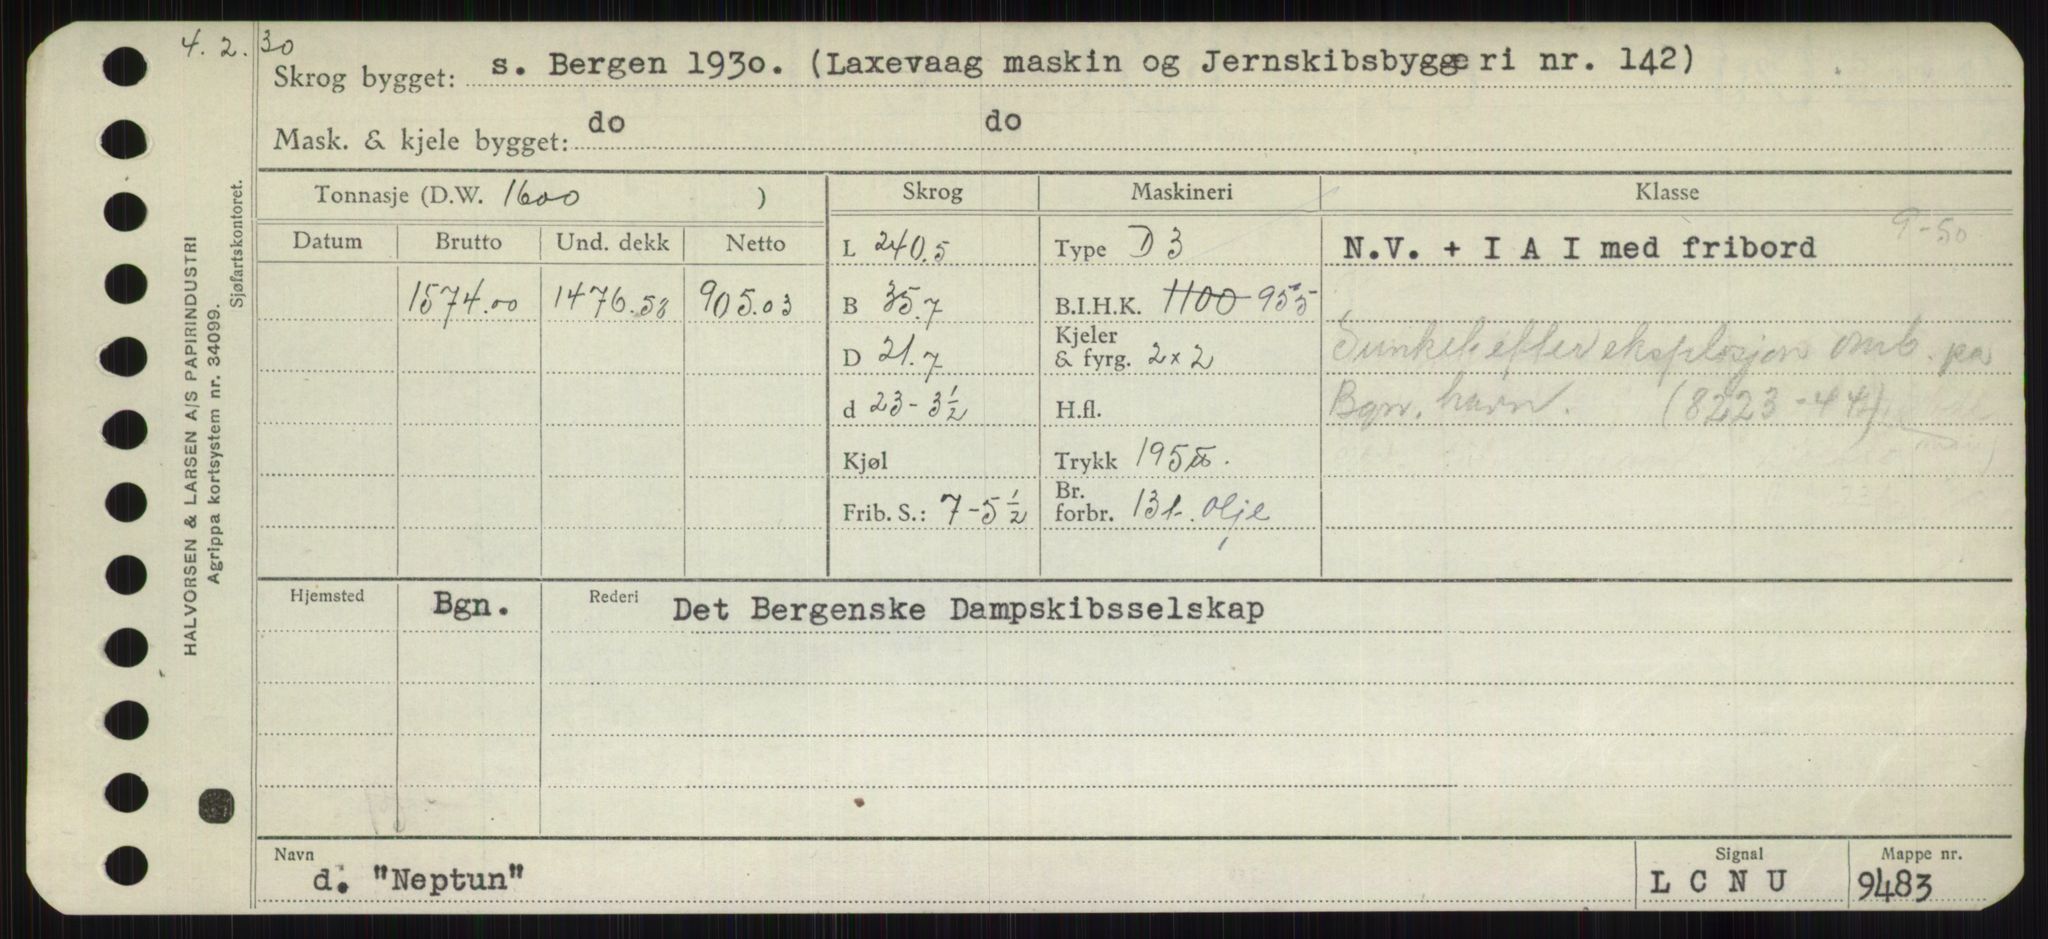 4. 2. 30
Skrog bygget: s. Bergen 1930. (Laxevaag maskin og Jernskibsbyggeri nr. 142)
Mask. & kjele bygget: do do
Tonnasje (D.W. 1600 ) Skrog Maskineri Klasse
9-50
Datum Brutto Und. dekk Netto L 240.5 Type D 3 N.V. + I A I med fribord
1574.00 1476.58 905.03 B 35.7 B.I.H.K. 1100 955
D 21.7 Kjeler & fyrg. 2x2 Sunket efter eksplosjon omb. på
d 23-3½ H.fl. Bgn. havn. (8223-44)
Kjøl Trykk 195
Frib. S.: 7-5½ Br. forbr. 13 t. olje
Hjemsted Bgn. Rederi Det Bergenske Dampskibsselskap
Navn Signal Mappe nr.
d. "Neptun" L C N U 9483
HALVORSEN & LARSEN A/S PAPIRINDUSTRI
Agrippa kortsystem nr. 34099.
Sjøfartskontoret.